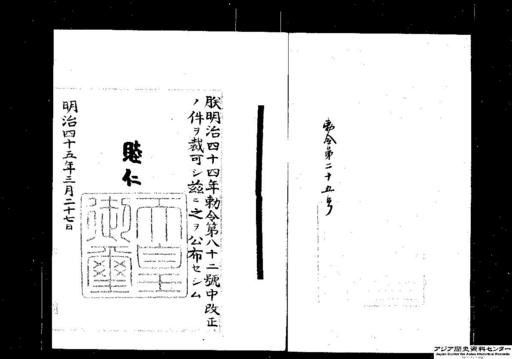 勅令第二十五号
朕明治四十四年勅令第八十二號中改正
ノ件ヲ裁可シ茲ニ之ヲ公布セシム
睦仁
天皇
御璽
明治四十五年三月二十七日
アジア歴史資料センター
Japan Center for Asian Historical Records